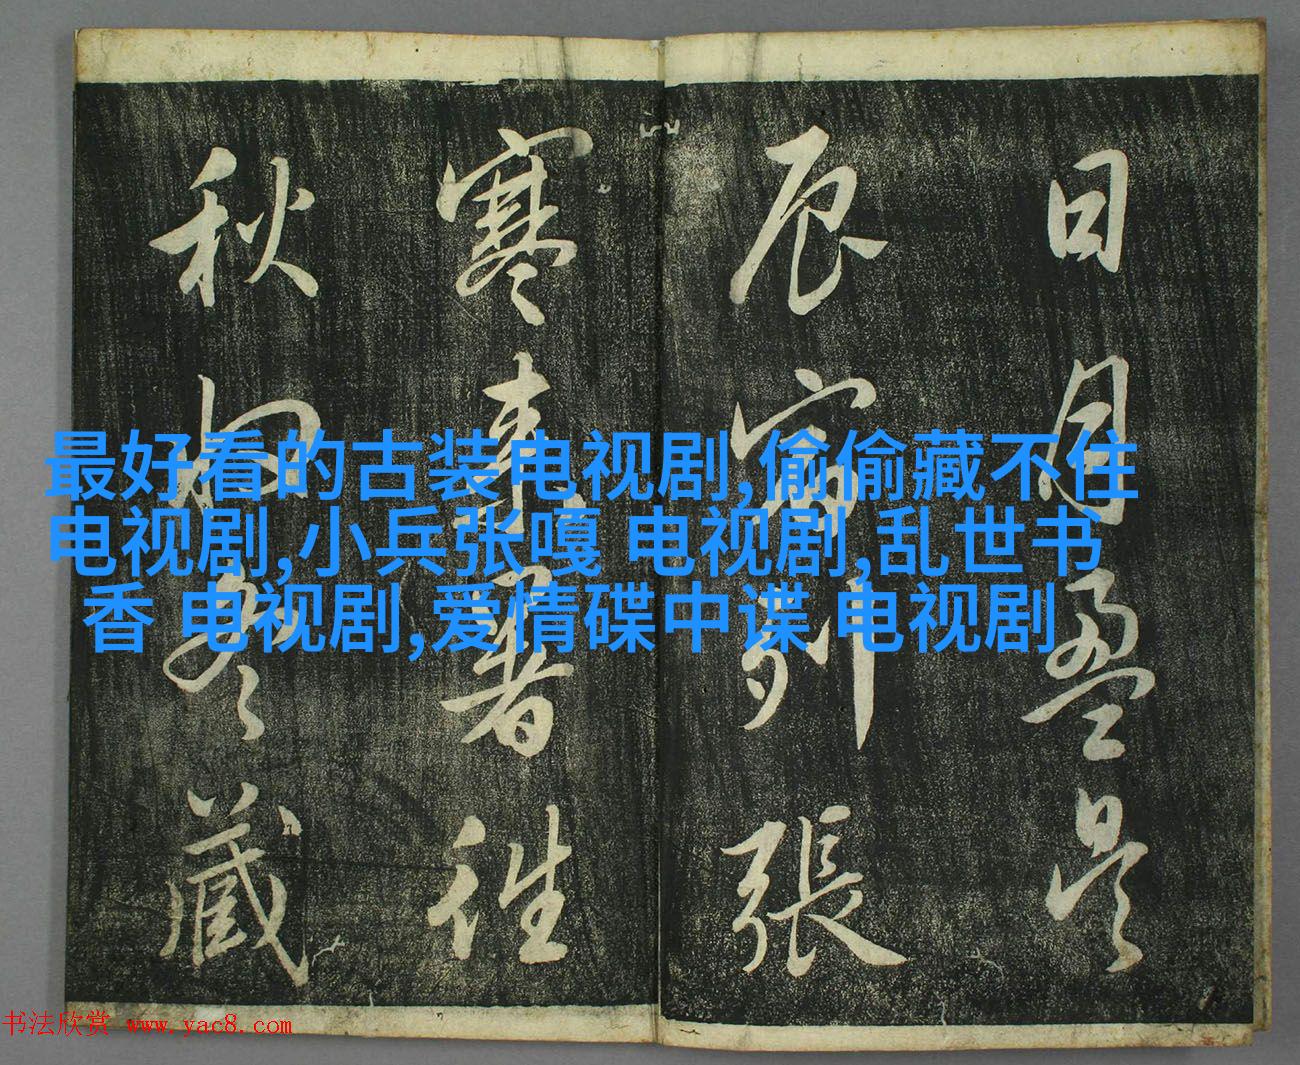 日月盈昃
辰宿列張
寒来暑往
秋收冬藏
最好看的古装电视剧,偷偷藏不住
电视剧,小兵张嘎 电视剧,乱世书
香 电视剧,爱情碟中谍 电视剧
书法欣赏 www.yac8.com